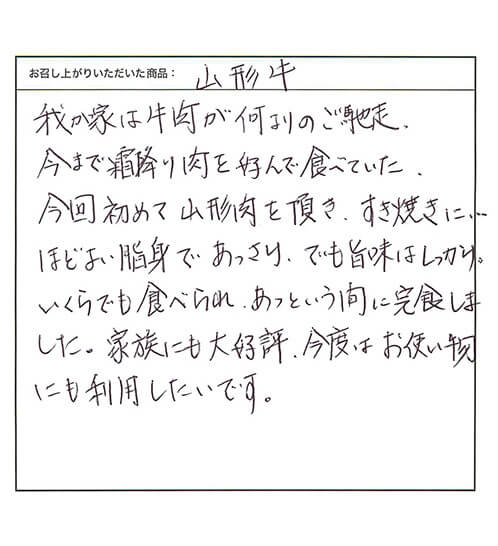 お召し上がりいただいた商品： 山形牛
我が家は牛肉が何よりのご馳走、
今まで霜降り肉を好んで食べていた、
今回初めて山形肉を頂き、すき焼きに…
ほどよい脂身であっさり、でも旨味はしっかり。
いくらでも食べられ、あっという間に完食しま
した。家族にも大好評、今度はお使い物
にも利用したいです。